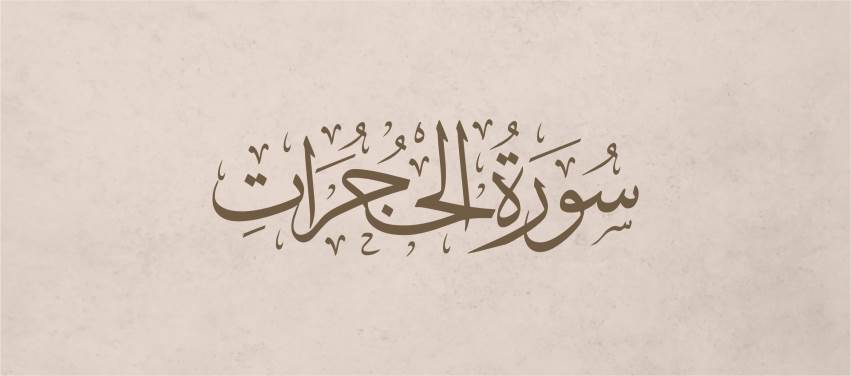 سُورَةُ الحُجُرَاتِ